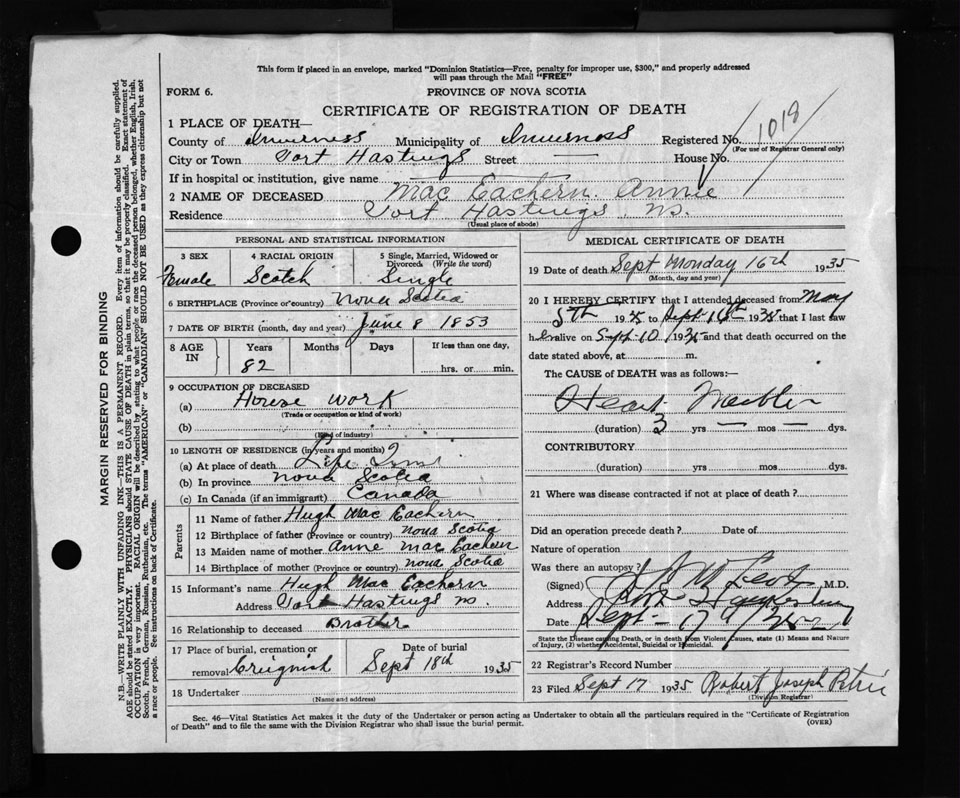 This form if placed in an envelope, marked "Dominion Statistics—Free, penalty for improper use, $300," and properly addressed
will pass through the Mail "FREE"
FORM 6.
PROVINCE OF NOVA SCOTIA
CERTIFICATE OF REGISTRATION OF DEATH
1 PLACE OF DEATH—
County of Inverness Municipality of Inverness Registered No. 1018
(For use of Registrar General only)
City or Town Port Hastings Street — House No.
If in hospital or institution, give name
2 NAME OF DECEASED Mac Eachern Annie
Residence Port Hastings NS.
(Usual place of abode)
PERSONAL AND STATISTICAL INFORMATION
3 SEX 4 RACIAL ORIGIN 5 Single, Married, Widowed or
Divorced (Write the word)
Female Scotch Single
6 BIRTHPLACE (Province or country) Nova Scotia
7 DATE OF BIRTH (month, day and year) June 8 1853
8 AGE IN Years Months Days If less than one day,
82 hrs. or min.
9 OCCUPATION OF DECEASED
(a) House work
(Trade or occupation or kind of work)
(b)
(Kind of industry)
10 LENGTH OF RESIDENCE (in years and months)
(a) At place of death Life Time
(b) In province Nova Scotia
(c) In Canada (if an immigrant) Canada
Parents
11 Name of father Hugh Mac Eachern
12 Birthplace of father (Province or country) Nova Scotia
13 Maiden name of mother Anne Mac Eachern
14 Birthplace of mother (Province or country) Nova Scotia
15 Informant's name Hugh Mac Eachern
Address Port Hastings NS.
16 Relationship to deceased Brother
17 Place of burial, cremation or Date of burial
removal Craignish Sept 18th 1935
18 Undertaker
(Name and address)
MEDICAL CERTIFICATE OF DEATH
19 Date of death Sept Monday 16th 1935
(Month, day and year)
20 I HEREBY CERTIFY that I attended deceased from May
5th 1935 to Sept 16th 1935 that I last saw
her alive on Sept 10 1935 and that death occurred on the
date stated above, at m.
The CAUSE of DEATH was as follows:—
Heart
(duration) 3 yrs — mos — dys.
CONTRIBUTORY
(duration) yrs mos dys.
21 Where was disease contracted if not at place of death?
Did an operation precede death? Date of
Nature of operation
Was there an autopsy?
(Signed) M.D.
Address Port Hawkesbury
Date Sept — 17
State the Disease causing Death, or in death from Violent Causes, state (1) Means and Nature
of Injury, (2) whether Accidental, Suicidal or Homicidal.
22 Registrar's Record Number
23 Filed Sept 17 1935 Robert Joseph Petrie
(Division Registrar)
Sec. 46—Vital Statistics Act makes it the duty of the Undertaker or person acting as Undertaker to obtain all the particulars required in the "Certificate of Registration
of Death" and to file the same with the Division Registrar who shall issue the burial permit. (OVER)
MARGIN RESERVED FOR BINDING
N.B.—WRITE PLAINLY WITH UNFADING INK—THIS IS A PERMANENT RECORD. Every item of information should be carefully supplied.
AGE should be stated EXACTLY. PHYSICIANS should STATE CAUSE OF DEATH in plain terms, so that it may be properly classified. Exact statement of
OCCUPATION is very important. RACIAL ORIGIN will be described by stating to what people or race the deceased person belonged, whether English, Irish,
Scotch, French, German, Russian, Ruthenian, etc. The terms "AMERICAN" or "CANADIAN" SHOULD NOT BE USED as they express citizenship but not
a race or people. See instructions on back of Certificate.